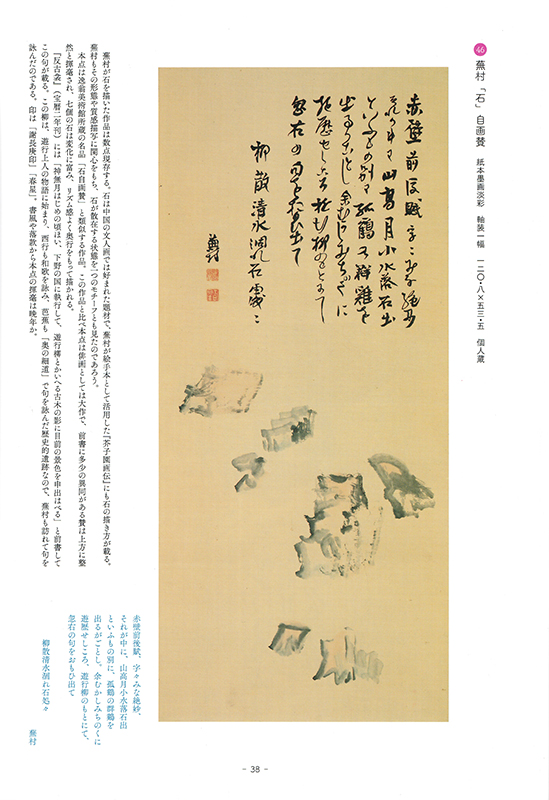 46 蕪村「石」自画賛 紙本墨画淡彩 軸装一幅 一二〇・八×五三・五 個人蔵
赤壁前後賦字々みな絶妙
それか中に山高月小水落石出
といふもの別に孤鶴の群鶏を
出るかことし余むかしみちのくに
遊歴せしころ遊行柳のもとにて
忽右の句をおもひ出て
柳散清水涸石処々
蕪村
蕪村が石を描いた作品は数点現存する。石は中国の文人画では好まれた題材で、蕪村が絵手本として活用した『芥子園画伝』にも石の描き方が載る。
蕪村もその形態や質感描写に関心をもち、石が散在する状態を一つのモチーフとも見たのであろう。
本点は逸翁美術館所蔵の名品「石自画賛」と類似する作品。この作品と比べ本点は俳画としては大作で、前書に多少の異同がある賛は上方に整
然と揮毫され、七個の石は変化に富み、リズム感よく奥行をもって描かれる。
『反古衾』（宝暦二年刊）には「神無月はじめの頃ほい、下野の国に執行して、遊行柳とかいへる古木の影に目前の景色を申出はべる」と前書して
この句が載る。この柳は、遊行上人の物語に始まり、西行も和歌を詠み、芭蕉も『奥の細道』で句を詠んだ歴史的遺跡なので、蕪村も訪れて句を
詠んだのである。印は「謝長庚印」「春星」。書風や落款から本点の揮毫は晩年か。
赤壁前後賦、字々みな絶妙。
それが中に、山高月小水落石出
といふもの別に、孤鶴の群鶏を
出るがごとし。余むかしみちのくに
遊歴せしころ、遊行柳のもとにて、
忽右の句をおもひ出て
柳散清水涸れ石処々
蕪村
- 38 -